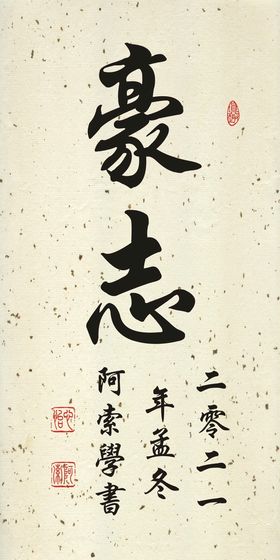 豪志
二零二一
年孟冬
阿索學書